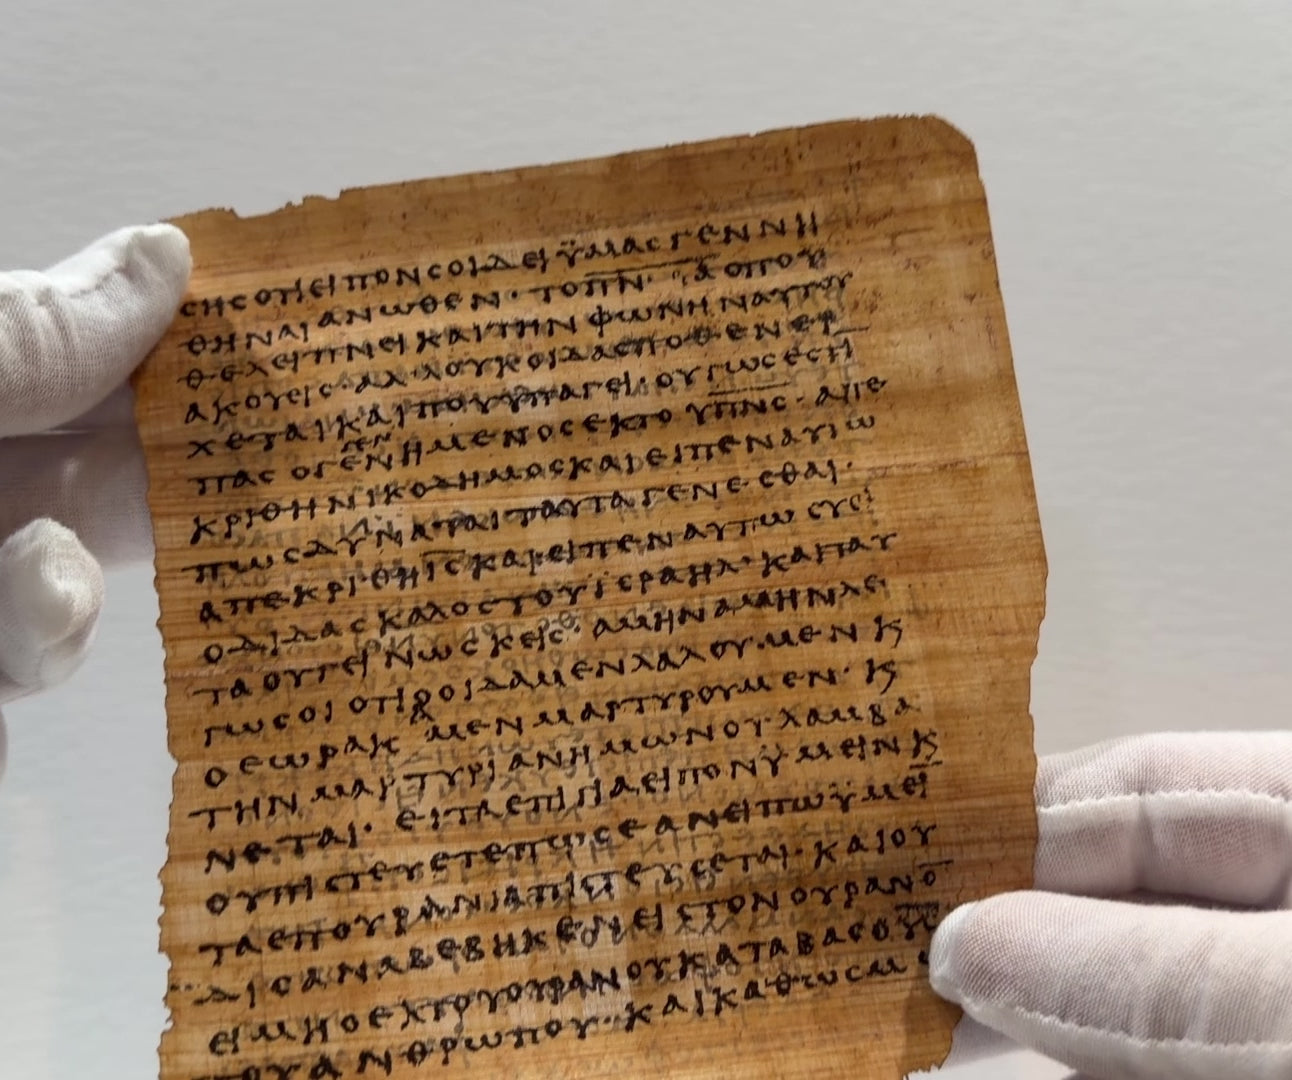 ϹΗϹΟΤΙΕΙΠΟΝϹΟΙΔΕΙΫΜΑϹΓΕΝΝΗ
ΘΗΝΑΙΑΝΩΘΕΝ· ΤΟΠ̅Ν̅· ΟΠΟΥ
ΘΕΛΕΙΠΝΕΙΚΑΙΤΗΝΦΩΝΗΝΑΥΤΟΥ
ΑΚΟΥΕΙϹ·ΑΛΛΟΥΚΟΙΔΑϹΠΟΘΕΝΕΡ
ΧΕΤΑΙΚΑΙΠΟΥΫΠΑΓΕΙ·ΟΥΤΩϹΕϹΤΙ
ΠΑϹΟΓΕΝΗΜΕΝΟϹΕΚΤΟΥΠ̅Ν̅Ϲ̅·ΑΠΕ
ΚΡΙΘΗΝΙΚΟΔΗΜΟϹΚΑΙΕΙΠΕΝΑΥΤΩ
ΠΩϹΔΥΝΑΤΑΙΤΑΥΤΑΓΕΝΕϹΘΑΙ·
ΑΠΕΚΡΙΘΗΙ̅Ϲ̅ΚΑΙΕΙΠΕΝΑΥΤΩϹΥΕΙ
ΟΔΙΔΑϹΚΑΛΟϹΤΟΥΙϹΡΑΗΛ·ΚΑΙΤΑΥ
ΤΑΟΥΓΕΙΝΩϹΚΕΙϹ·ΑΜΗΝΑΜΗΝΛΕ
ΓΩϹΟΙΟΤΙΟΟΙΔΑΜΕΝΛΑΛΟΥΜΕΝΚϚ
ΟΕΩΡΑΚΑΜΕΝΜΑΡΤΥΡΟΥΜΕΝ·ΚϚ
ΤΗΝΜΑΡΤΥΡΙΑΝΗΜΩΝΟΥΛΑΜΒΑ
ΝΕΤΑΙ·ΕΙΤΑΕΠΙΓΙΑΕΙΠΟΝΫΜΕΙΝΚϚ
ΟΥΠΙϹΤΕΥΕΤΕΠΩϹΕΑΝΕΙΠΩΫΜΕΙ̅
ΤΑΕΠΟΥΡΑΝΙΑΠΙϹΤΕΥϹΕΤΑΙ·ΚΑΙΟΥ
ΔΙϹΑΝΑΒΕΒΗΚΕΝΕΙϹΤΟΝΟΥΡΑΝΟ̅
ΕΙΜΗΟΕΚΤΟΥΟΥΡΑΝΟΥΚΑΤΑΒΑϹΟΥ̅Ϲ̅
ΤΟΥΑΝΘΡΩΠΟΥ·ΚΑΙΚΑΘΩϹΜΩ